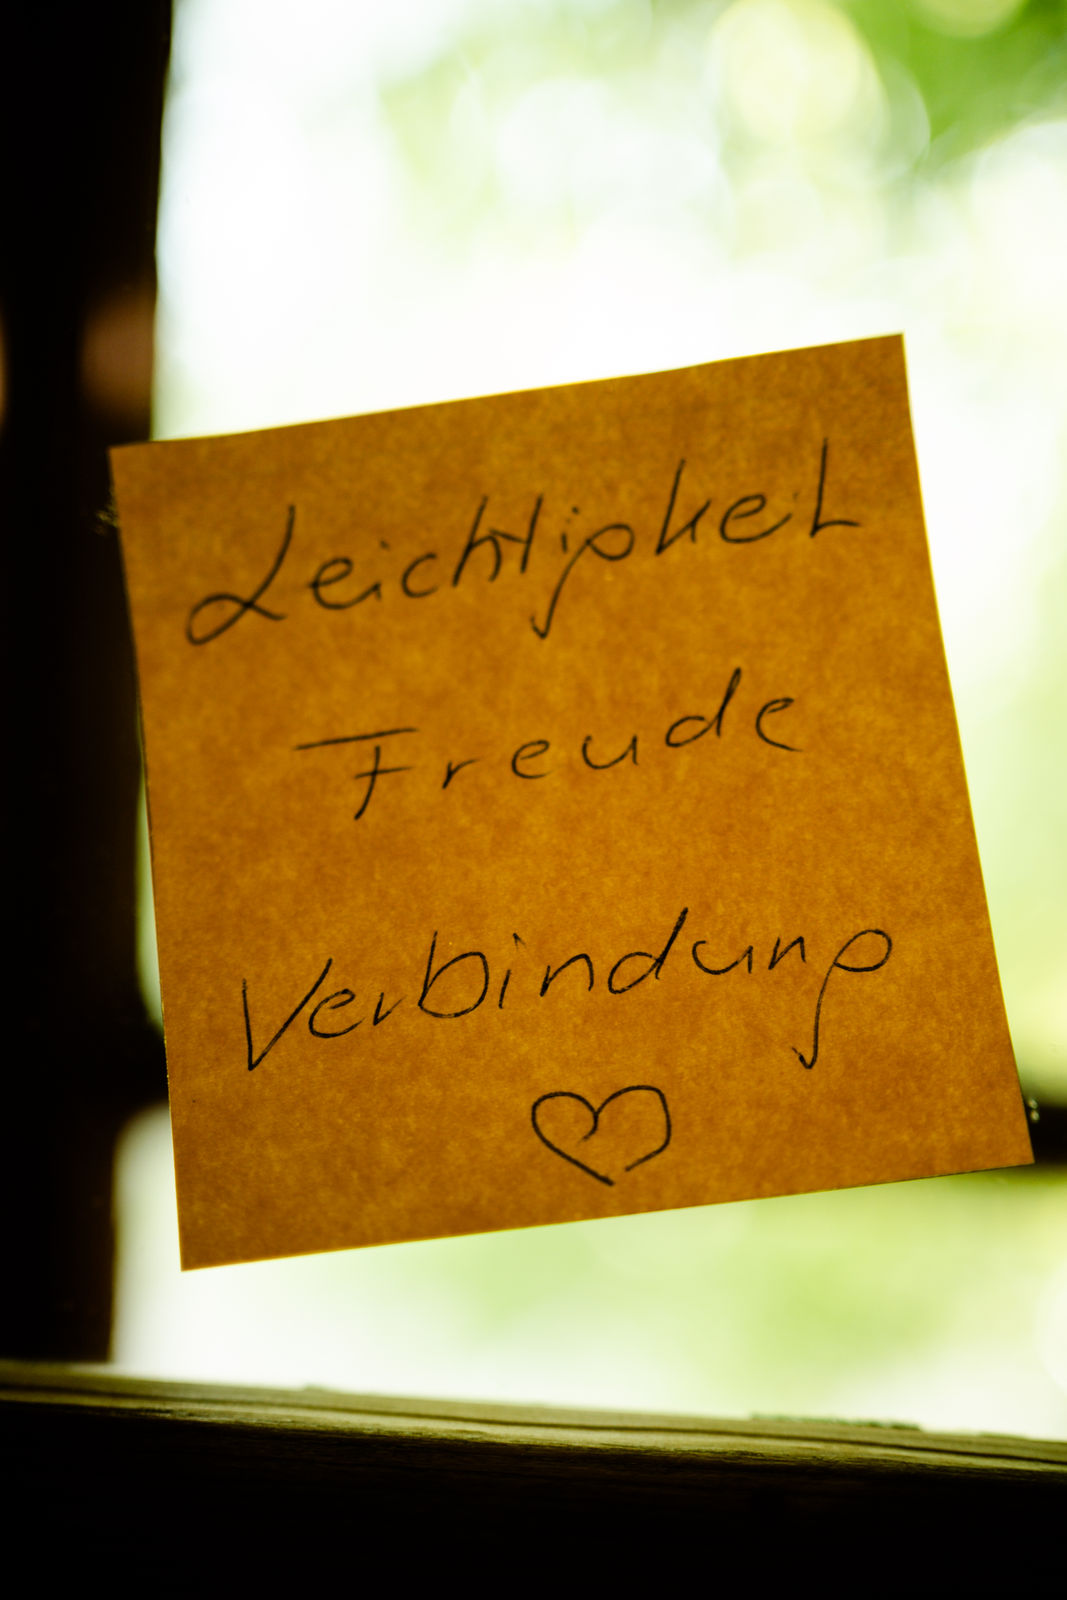 Leichtigkeit
Freude
Verbindung